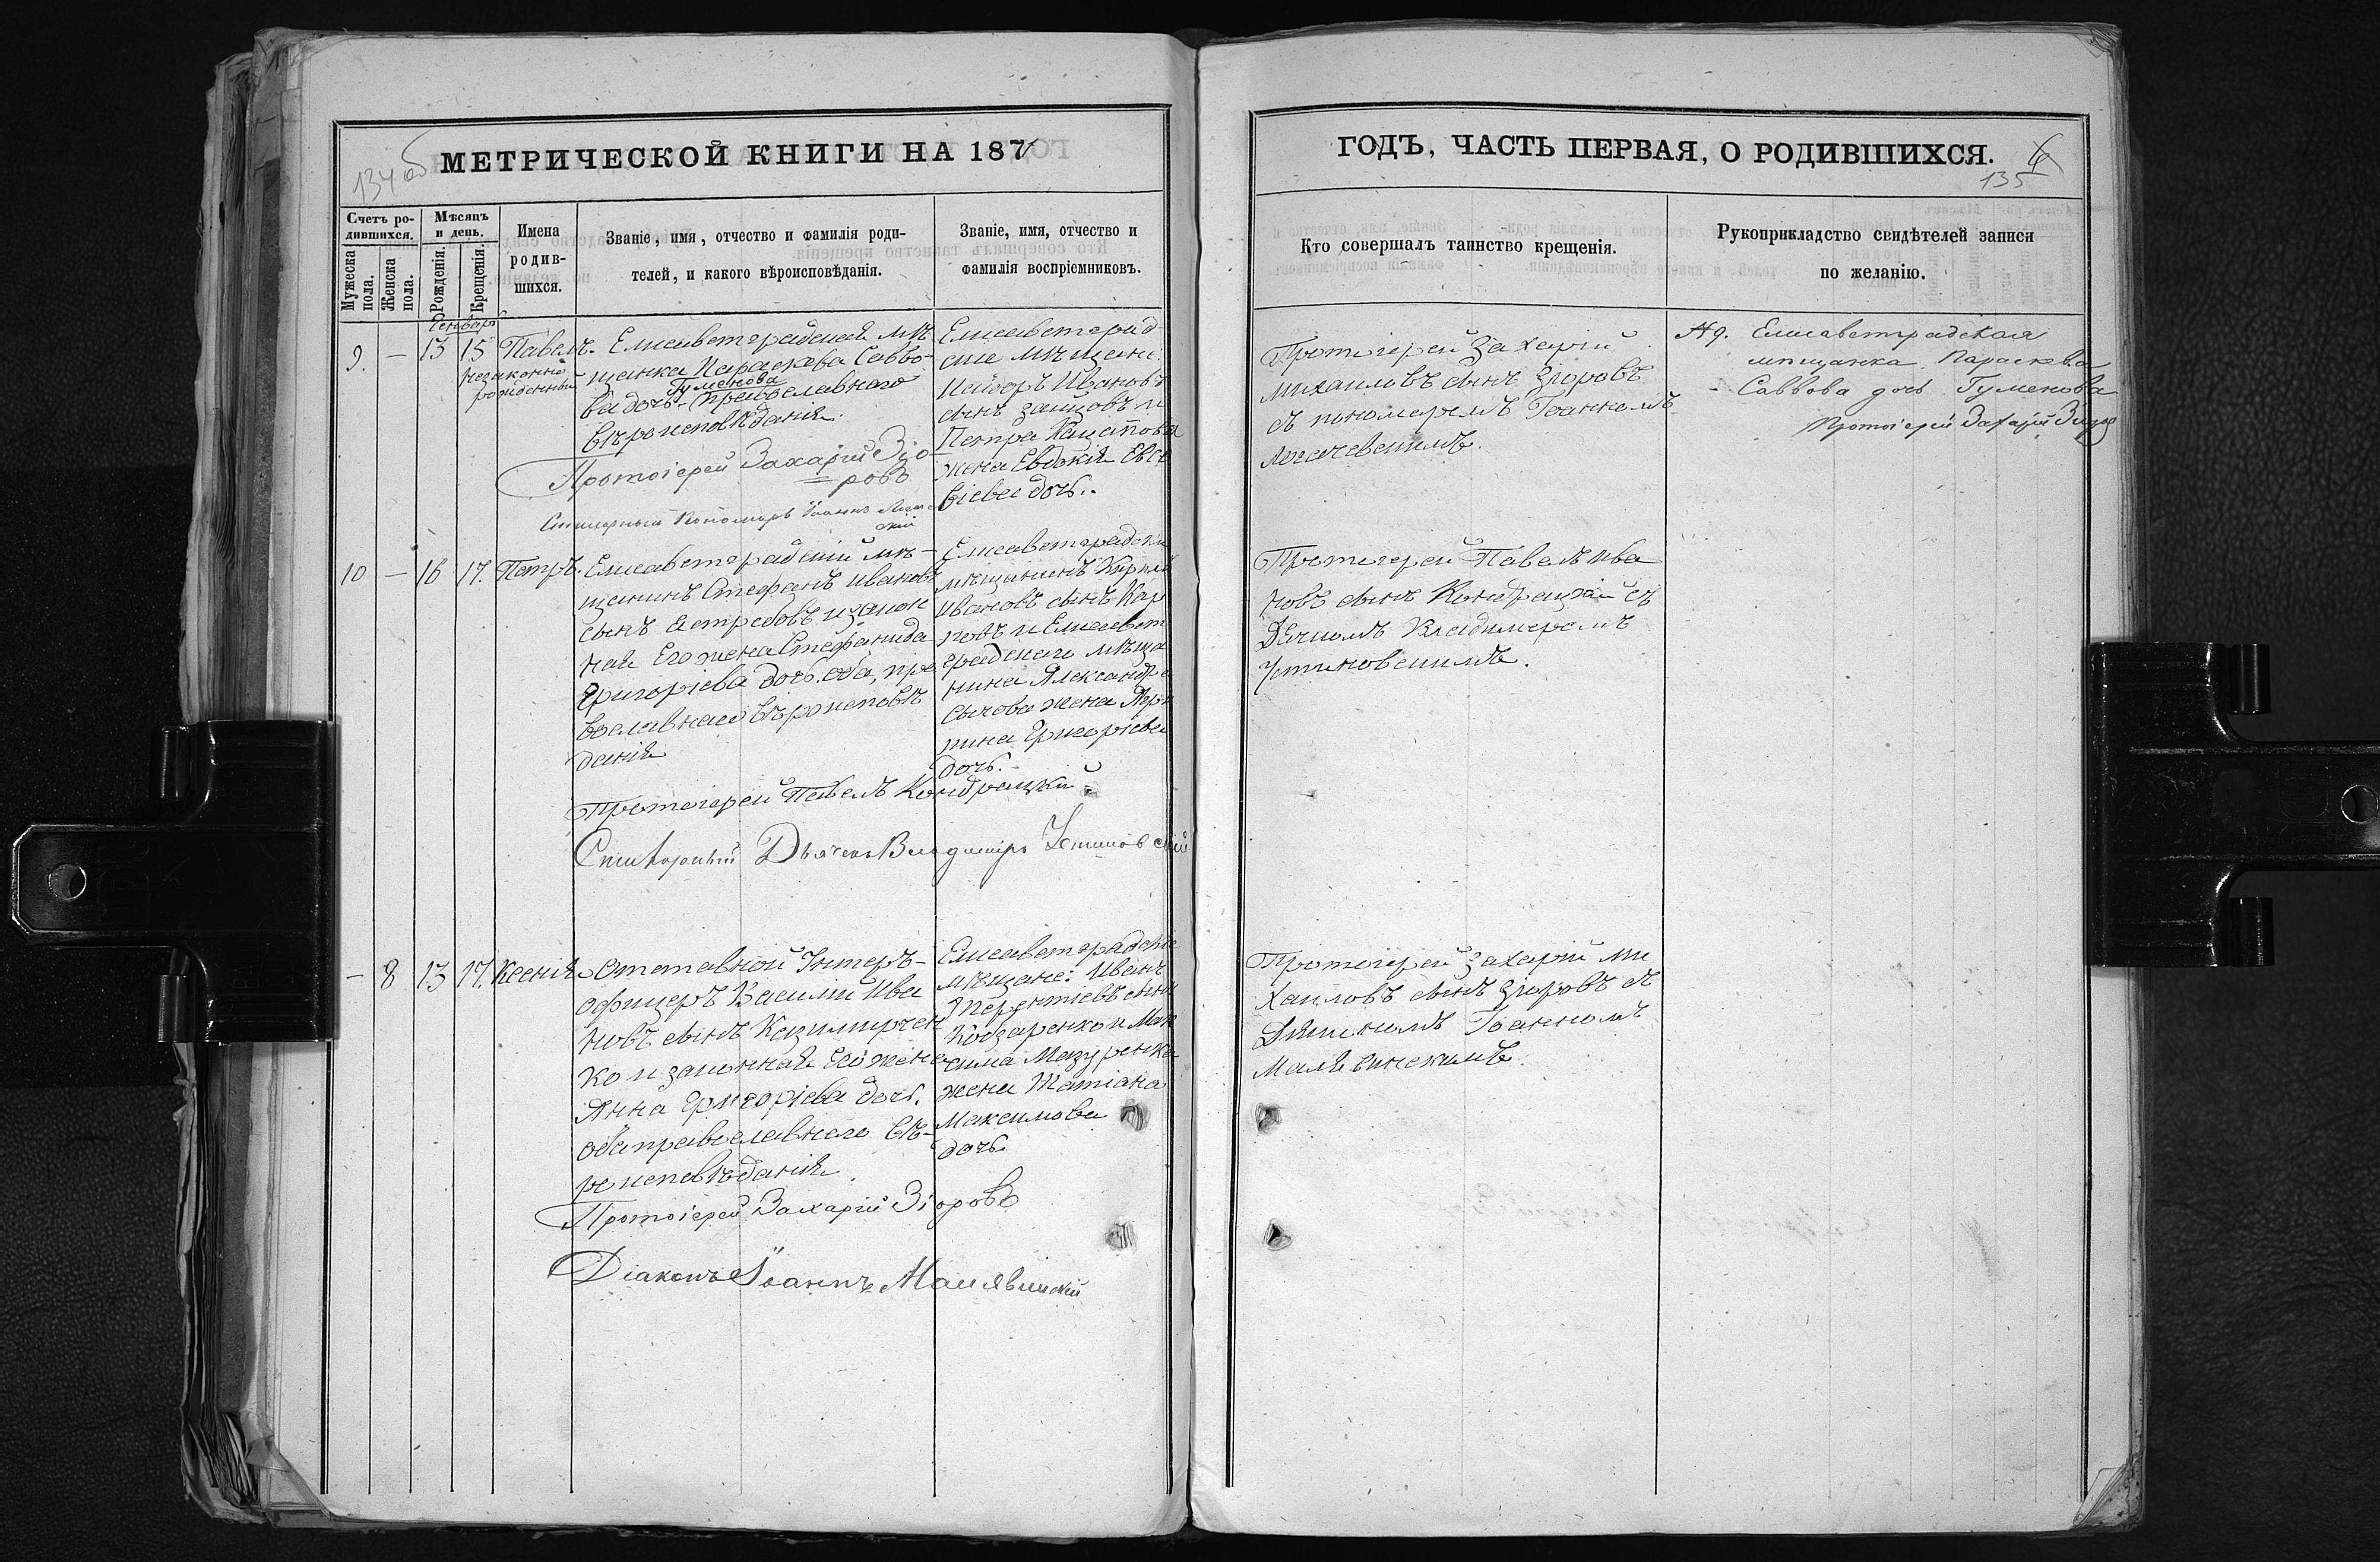 134 об
МЕТРИЧЕСКОЙ КНИГИ НА 187
Счетъ ро-
дившихся.
Мѣсяцъ
и день.
Мужеска
пола.
Женска
пола.
Рожденія.
Крещенія.
Имена
родив-
шихся.
Званіе, имя, отчество и фамилія роди-
телей, и какого вѣроисповѣданія.
Званіе, имя, отчество и
фамилія воспріемниковъ.
Генварь
9. — 13 15 Павелъ.
незаконно
рожденный
Елисаветградская мѣ
щанка Параскева Савво-
Гуменова
ва дочь православнаго
вѣроисповѣданія.
Протоіерей Захарій Зіо-
ровъ
Пономарь Іоаннъ
Елисаветград
скіе мѣщане
Ивановъ
сынъ Зайцовъ и
Петра
жена Евдокія
віева дочь.
10 — 16 17. Петръ.
Елисаветградскій мѣ-
щанинъ Стефанъ Ивановъ
сынъ Ястребовъ и закон
ная его жена Стефанида
Григорьева дочь, оба пра
вославнаго вѣроисповѣ
данія
Протоіерей Павелъ Кондрацкій.
Дьячекъ Владиміръ Устиновскій
Елисаветградскій
мѣщанинъ Кирилъ
Ивановъ сынъ Кар
повъ и Елисавет
градскаго мѣща
нина Александра
Сычова жена
Григорьева
дочь.
— 8 13 17. Ксенія.
Отставной Унтеръ-
офицеръ Василій Ива
новъ сынъ Казимирчен
ко и законная его жена
Анна Григорьева дочь.
оба православнаго вѣ-
роисповѣданія.
Протоіерей Захарій Зіоровъ
Діаконъ Іоаннъ Малявинскій
Елисаветградскіе
мѣщане: Иванъ
Терентіевъ сынъ
Кобзаренко и Мак
сима Мазуренка
жена Татіана
Максимова
дочь.
ГОДЪ, ЧАСТЬ ПЕРВАЯ, О РОДИВШИХСЯ.
135
Кто совершалъ таинство крещенія.
Рукоприкладство свидѣтелей записи
по желанію.
Протоіерей Захарій
Михаиловъ сынъ Зіоровъ
съ пономаремъ Іоанномъ
№ 9. Елисаветградская
мѣщанка Параскева
Саввова дочь Гуменова
Протоіерей Захарій
Протоіерей Павелъ Ива
новъ сынъ Кондрацкій съ
Дячкомъ Владимеромъ
Устиновскимъ.
Протоіерей Захарій Ми
хаиловъ сынъ Зіоровъ съ
Діякономъ Іоанномъ
Малявинскимъ.